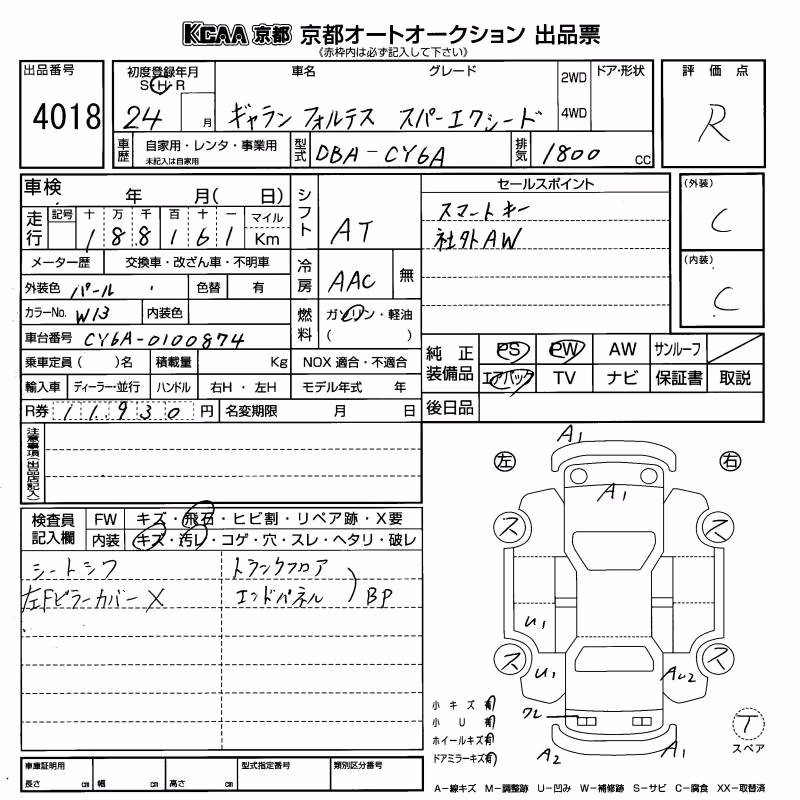 KCAA 京都 京都オートオークション 出品票
《赤枠内は必ず記入して下さい》
出品番号
4018
初度登録年月
S H R
24 月
車名 グレード
ギャラン フォルテス スパーエクシード
2WD
4WD
ドア・形状
評価点
R
車歴
自家用・レンタ・事業用
未記入は自家用
型式
DBA-CY6A
排気
1800 CC
車検 年 月( 日)
走行
記号 十 万 千 百 十 一 マイル
1 8 8 1 6 1 Km
メーター歴 交換車・改ざん車・不明車
外装色 パール 色替 有
カラーNo. W13 内装色
車台番号 CY6A-0100874
乗車定員( )名 積載量 Kg
輸入車 ディーラー・並行 ハンドル 右H・左H
R券 11,930 円 名変期限 月 日
シフト
AT
冷房
AAC 無
燃料
ガソリン・軽油
( )
NOX 適合・不適合
モデル年式 年
セールスポイント
スマートキー
社外AW
(外装)
C
(内装)
C
純正装備品
PS PW AW サンルーフ
エアバック TV ナビ 保証書 取説
後日品
注意事項(出品店記入)
検査員記入欄
FW キズ・飛石・ヒビ割・リペア跡・X要
内装 キズ・汚レ・コゲ・穴・スレ・ヘタリ・破レ
シートシワ トランクフロア
左Fピラーカバー X エンドパネル ) BP
左 右
A1
A1
ス ス
U1
ス ス
U1 AU2
ワレ
A2 A1
小キズ有
小U有
ホイールキズ有
ドアミラーキズ有
T
スペア
車庫証明用
長さ cm 幅 cm 高さ cm
型式指定番号
類別区分番号
A−線キズ M−調整跡 U−凹み W−補修跡 S−サビ C−腐食 XX−取替済